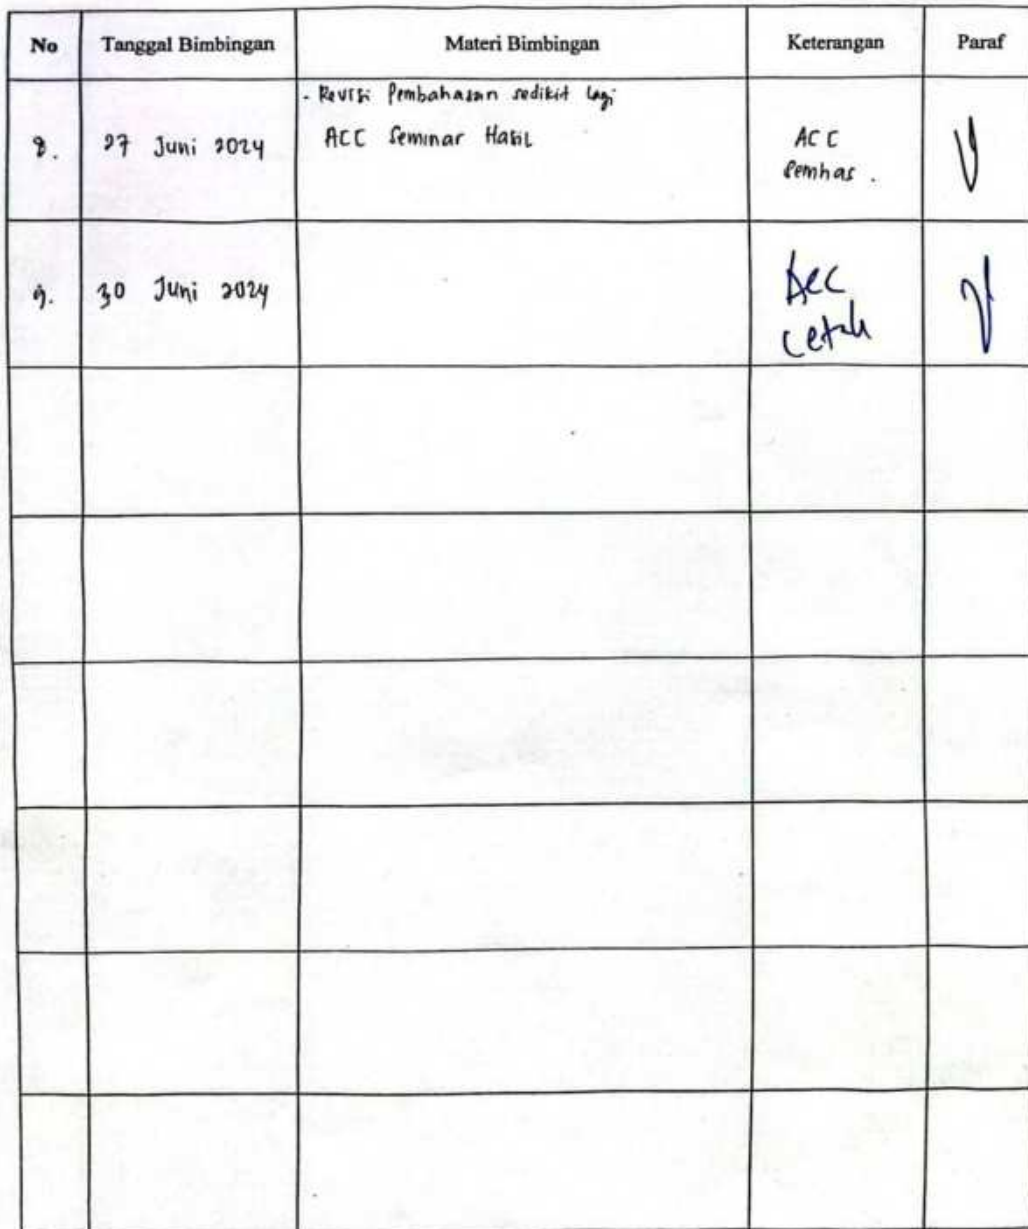 No Tanggal Bimbingan Materi Bimbingan Keterangan Paraf
- Revisi Pembahasan sedikit lagi
8. 27 Juni 2024 ACC Seminar Hasil ACC
Semhas .
9. 30 Juni 2024 Acc
cetak